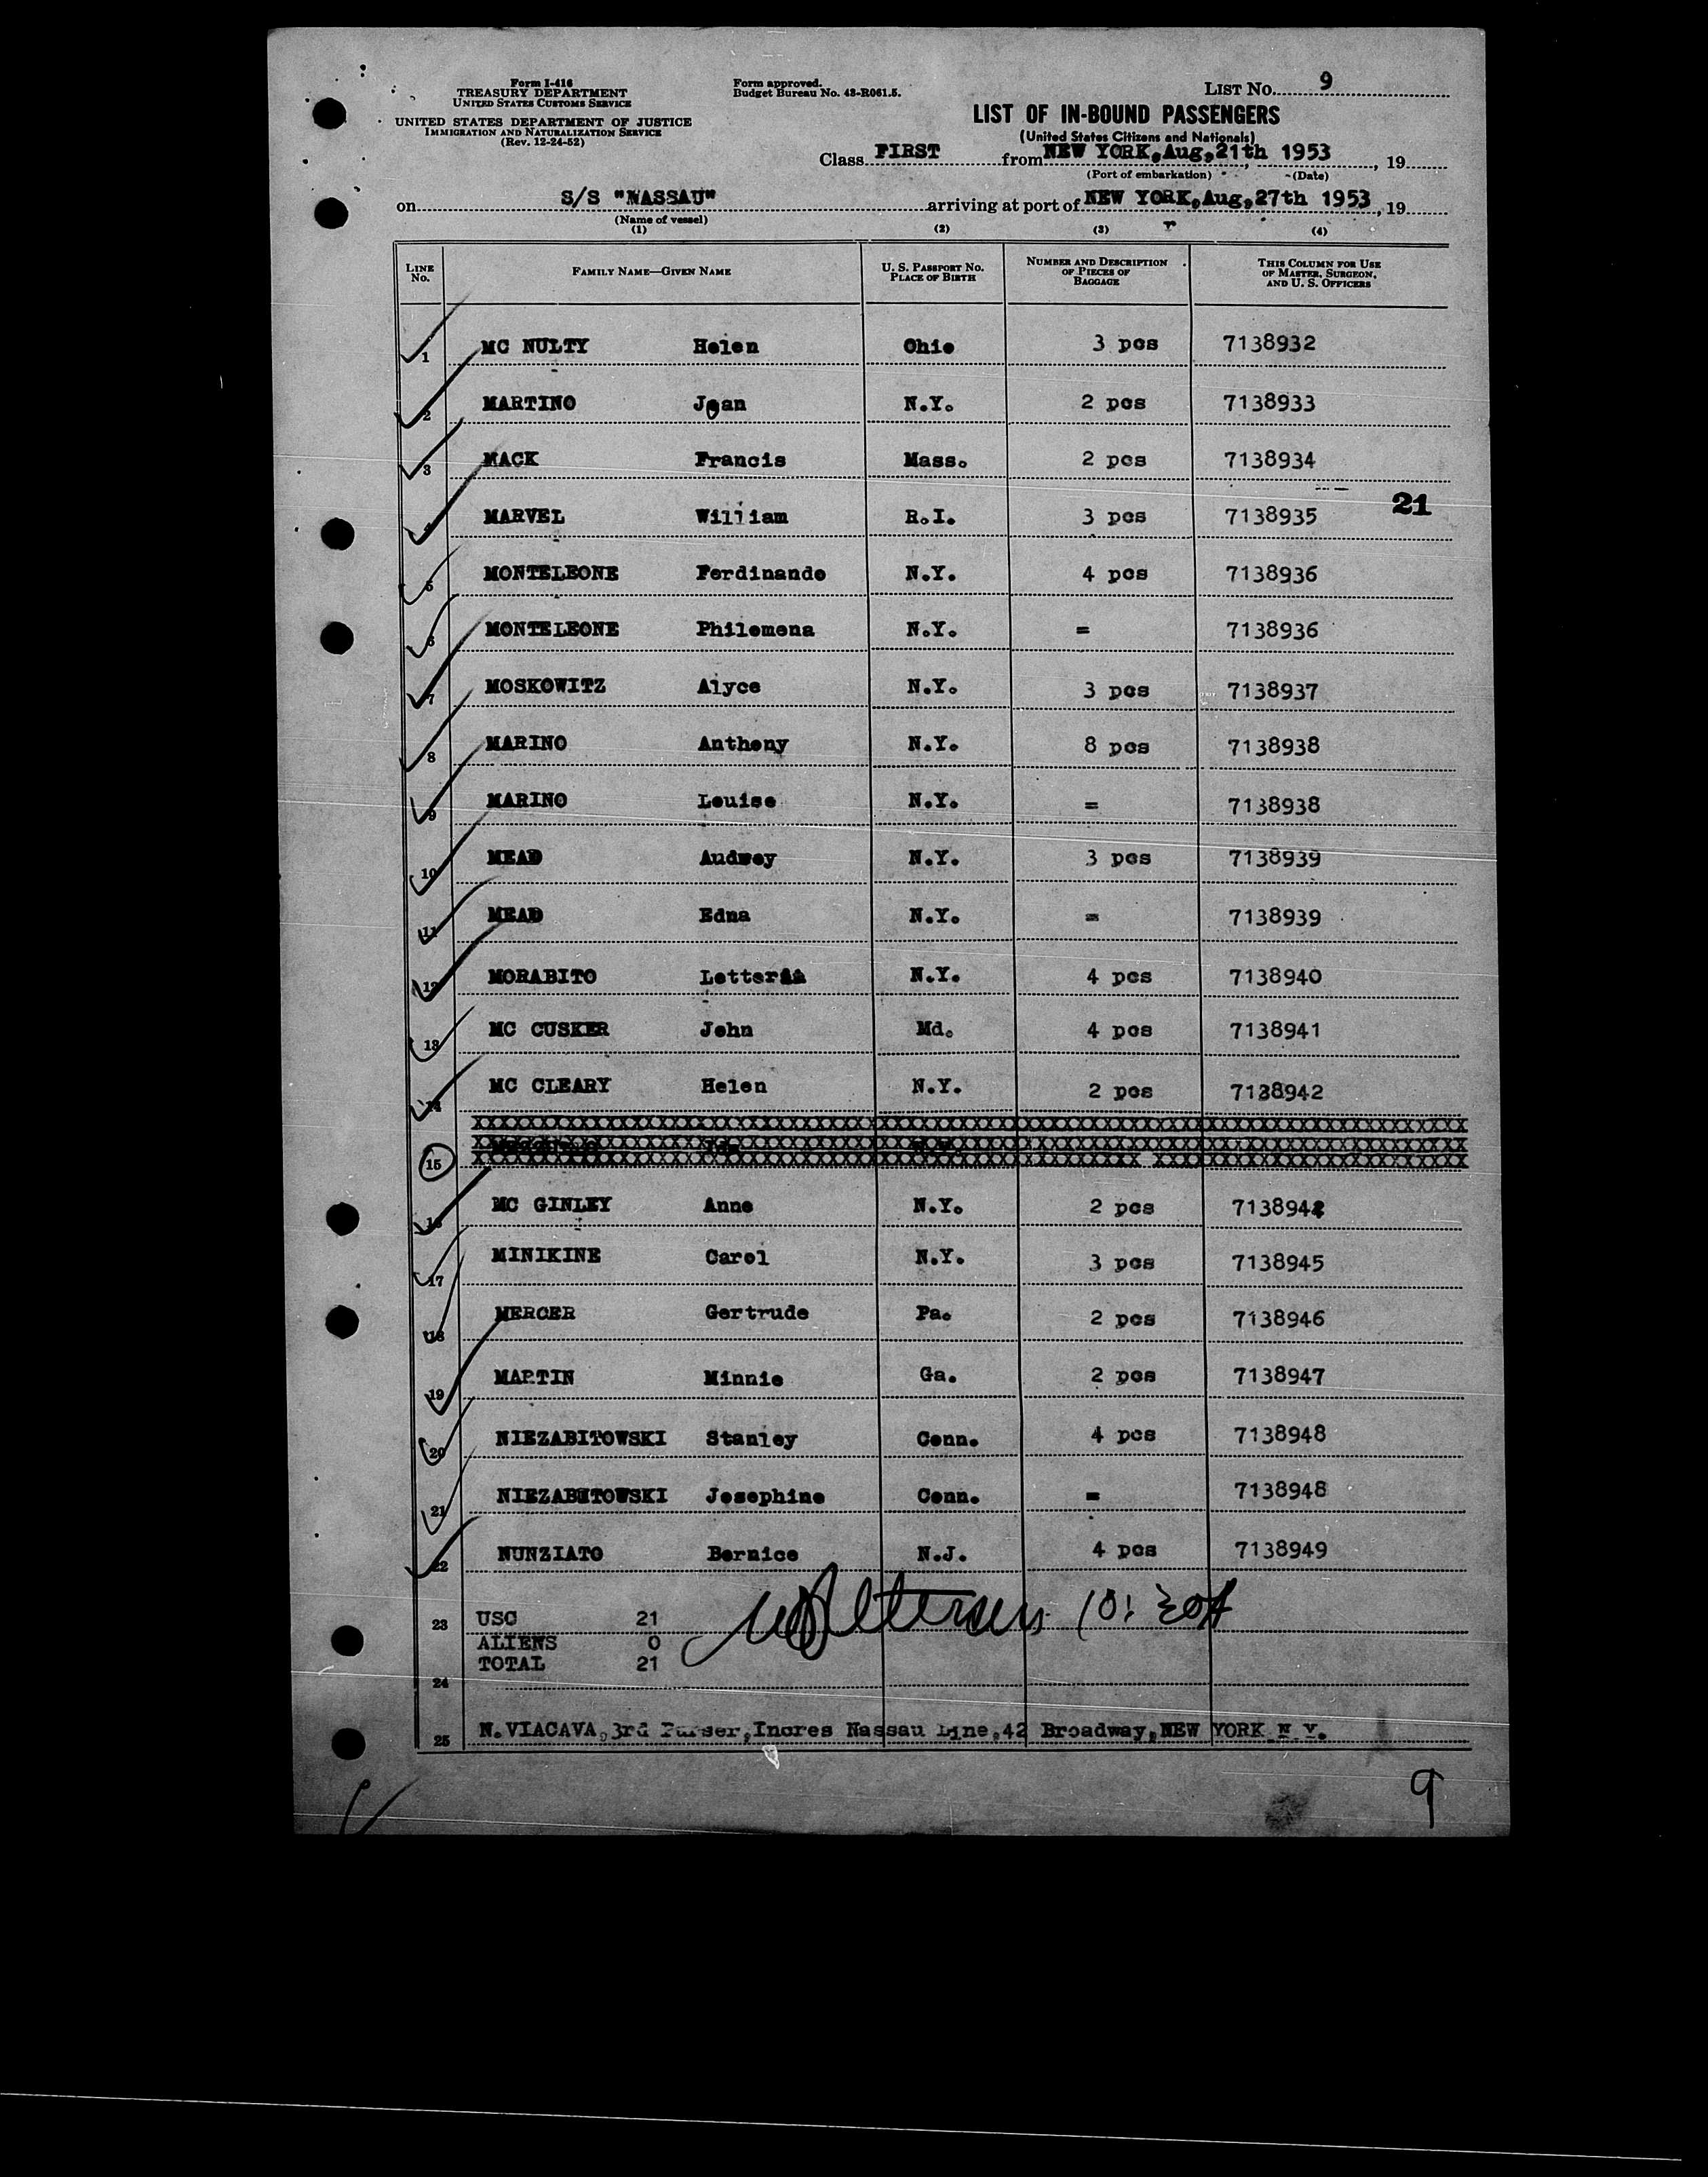 Form I-416
TREASURY DEPARTMENT
UNITED STATES CUSTOMS SERVICE
UNITED STATES DEPARTMENT OF JUSTICE
IMMIGRATION AND NATURALIZATION SERVICE
(Rev. 12-24-52)
Form approved.
Budget Bureau No. 43-R061.5.
LIST No. 9
LIST OF IN-BOUND PASSENGERS
(United States Citizens and Nationals)
Class FIRST from NEW YORK, Aug, 21th 1953, 19
(Port of embarkation) (Date)
on S/S "NASSAU" arriving at port of NEW YORK, Aug, 27th 1953, 19
(Name of vessel)
(1) (2) (3) (4)
LINE No. FAMILY NAME—GIVEN NAME U. S. PASSPORT No. PLACE OF BIRTH NUMBER AND DESCRIPTION OF PIECES OF BAGGAGE THIS COLUMN FOR USE OF MASTER, SURGEON, AND U. S. OFFICERS
1 MC NULTY Helen Ohio 3 pcs 7138932
2 MARTINO Jean N.Y. 2 pcs 7138933
3 MACK Francis Mass. 2 pcs 7138934
21
4 MARVEL William R.I. 3 pcs 7138935
5 MONTELEONE Ferdinando N.Y. 4 pcs 7138936
6 MONTELEONE Philomena N.Y. = 7138936
7 MOSKOWITZ Alyce N.Y. 3 pcs 7138937
8 MARINO Anthony N.Y. 8 pcs 7138938
9 MARINO Louise N.Y. = 7138938
10 MEAD Audrey N.Y. 3 pcs 7138939
11 MEAD Edna N.Y. = 7138939
12 MORABITO Letteria N.Y. 4 pcs 7138940
13 MC CUSKER John Md. 4 pcs 7138941
14 MC CLEARY Helen N.Y. 2 pcs 7138942
15
16 MC GINLEY Anne N.Y. 2 pcs
17 MINIKINE Carol N.Y. 3 pcs 7138945
18 MERCER Gertrude Pa. 2 pcs 7138946
19 MARTIN Minnie Ga. 2 pcs 7138947
20 NIEZABITOWSKI Stanley Conn. 4 pcs 7138948
21 NIEZABITOWSKI Josephine Conn. = 7138948
22 NUNZIATO Bernice N.J. 4 pcs 7138949
23 USC 21
ALIENS 0
TOTAL 21
24
25 N. VIACAVA, 3rd Purser, Incres Nassau Line, 42 Broadway, NEW YORK N.Y.
9